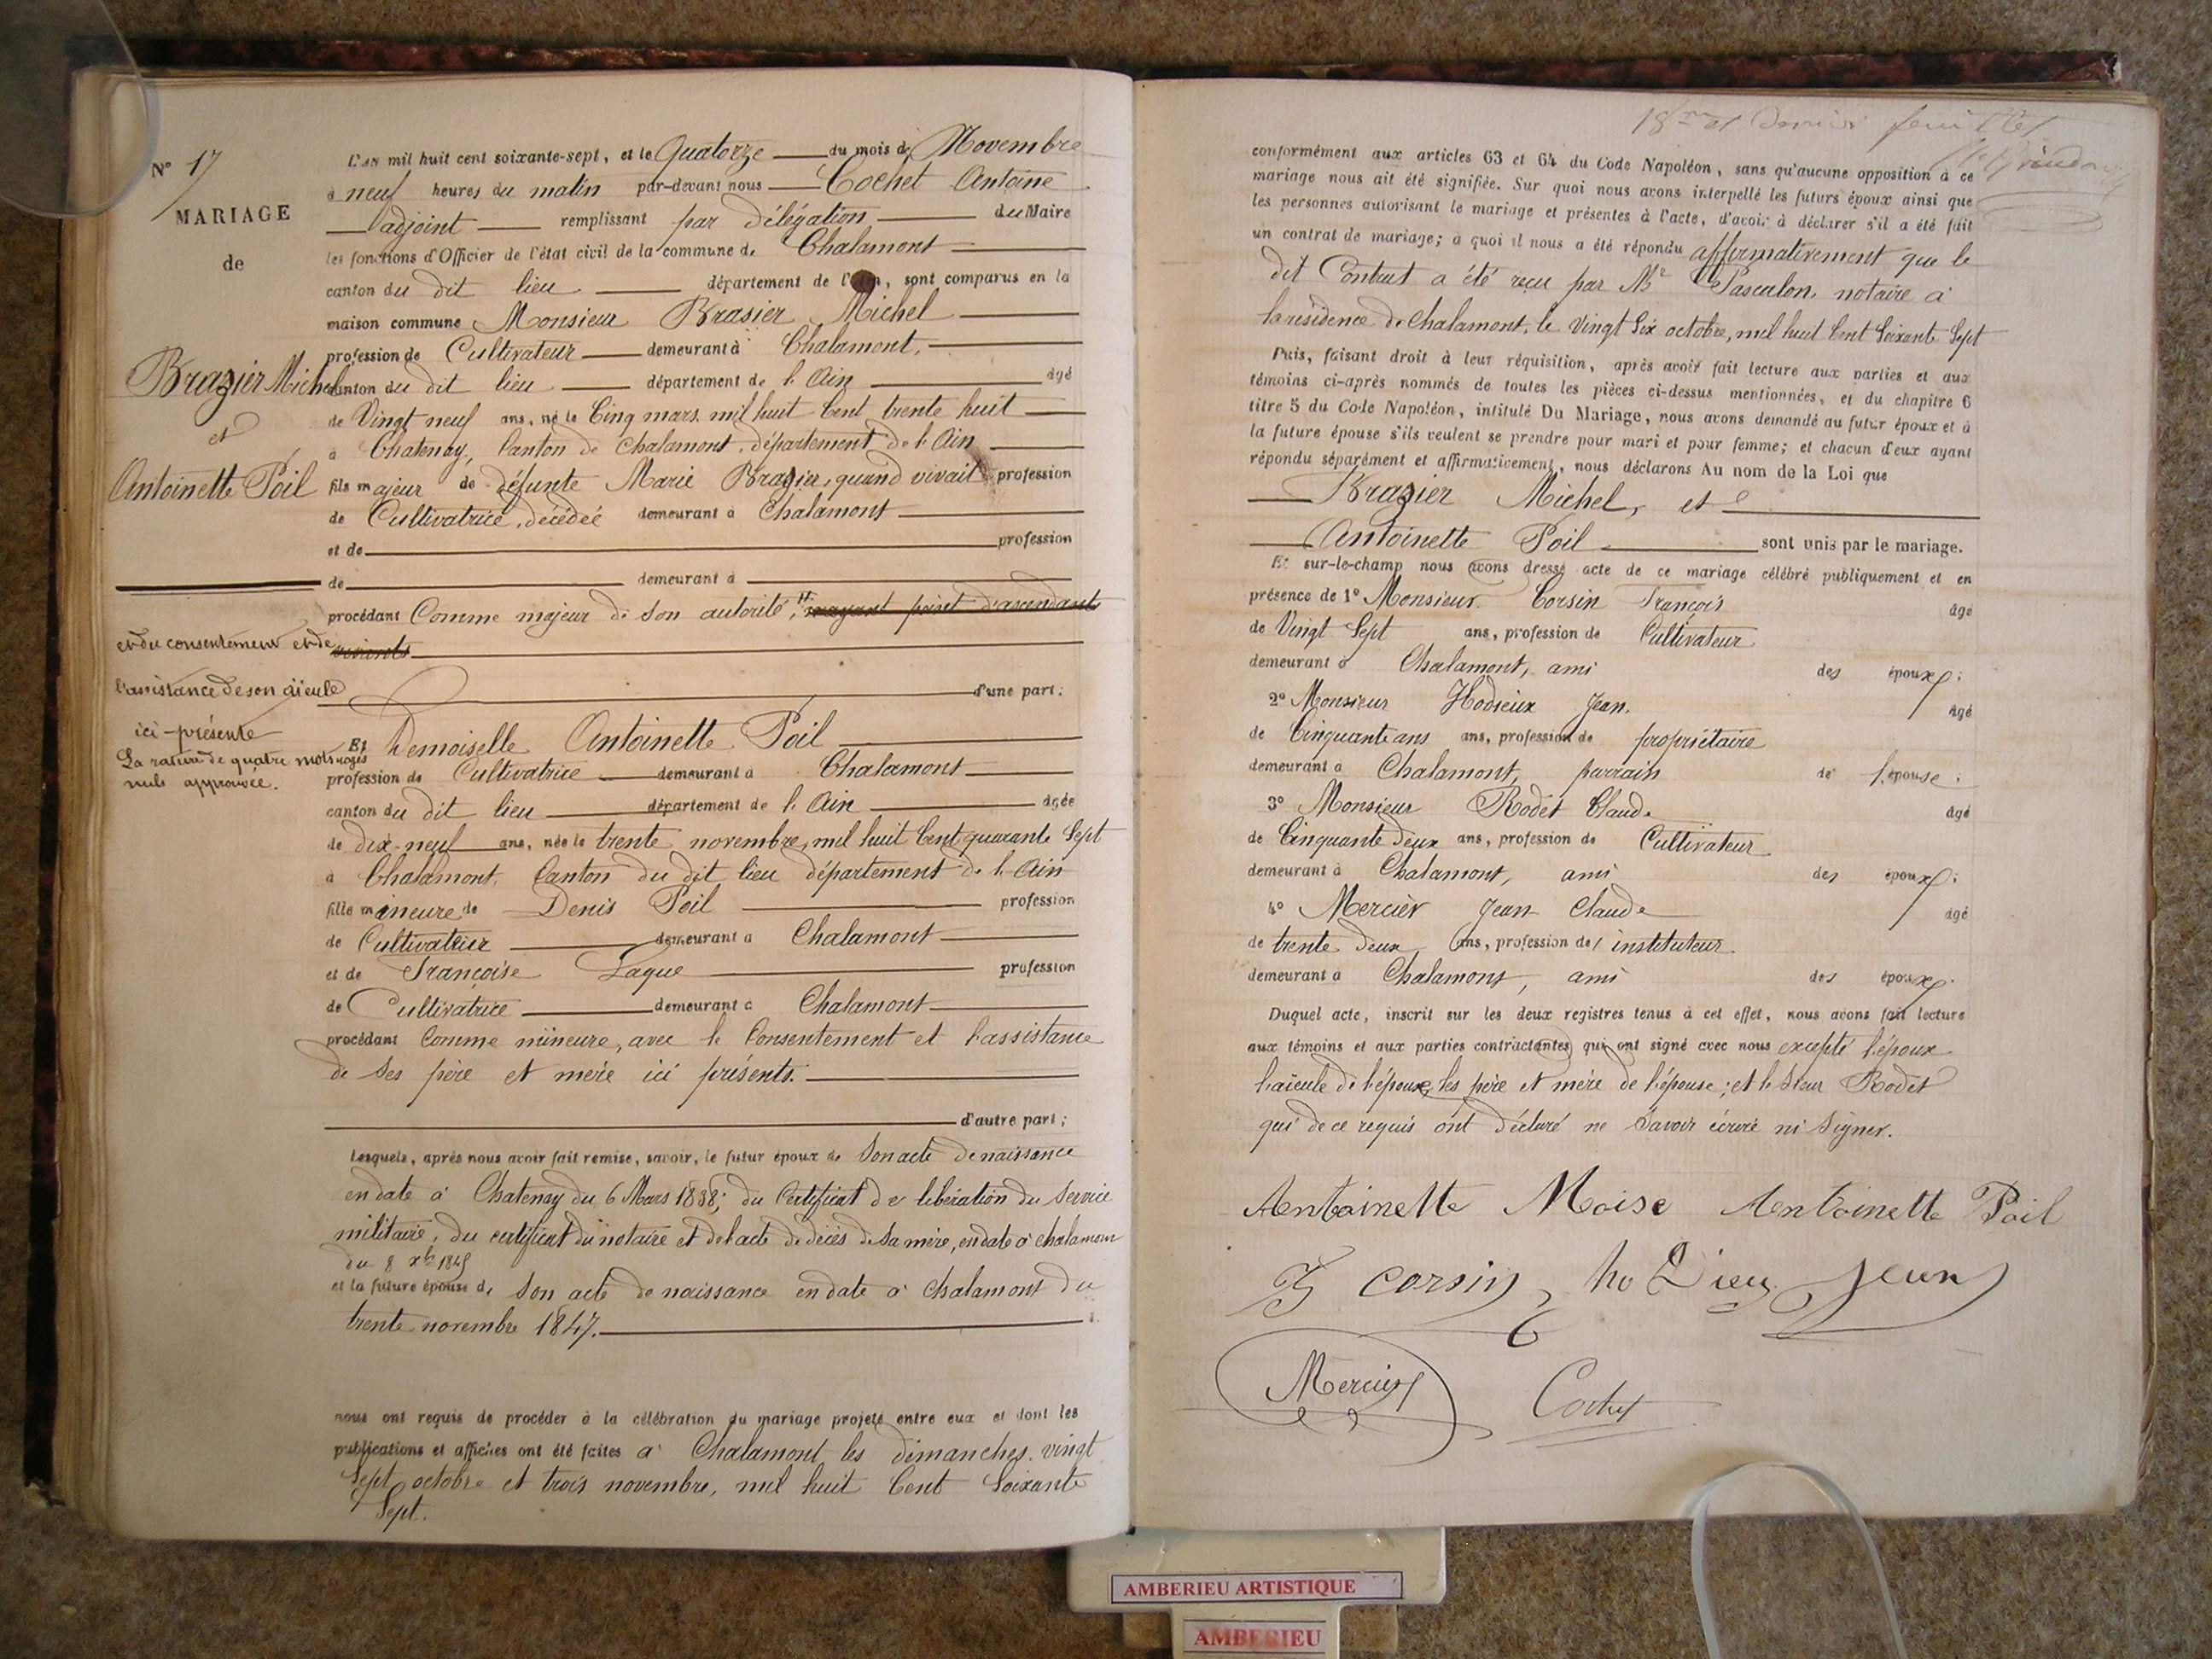 N° 17
MARIAGE
de
Brazier Michel
et
Antoinette Poil
et du consentement et de
l'assistance de son aïeule
ici-présente
La rature de quatre mots rayés
nuls approuvée.
L'an mil huit cent soixante-sept, et le Quatorze du mois de Novembre
à neuf heures du matin par-devant nous Cochet Antoine
adjoint remplissant par délégation du Maire
les fonctions d'Officier de l'état civil de la commune de Chalamont
canton du dit lieu département de l'Ain, sont comparus en la
maison commune Monsieur Brasier Michel
profession de Cultivateur demeurant à Chalamont,
canton du dit lieu département de l'Ain âgé
de Vingt neuf ans, né le Cinq mars mil huit Cent trente huit
à Chatenay, Canton de Chalamont, département de l'Ain
fils majeur de défunte Marie Brazier, quand vivait profession
de Cultivatrice, décédée demeurant à Chalamont
et de profession
de demeurant à
procédant Comme majeur de son autorité, n'ayant point d'ascendants
vivants
d'une part;
Et Demoiselle Antoinette Poil
profession de Cultivatrice demeurant à Chalamont
canton du dit lieu département de l'Ain âgée
de dix-neuf ans, née le trente novembre, mil huit Cent quarante Sept
à Chalamont, Canton du dit lieu département de l'Ain
fille mineure de Denis Poil profession
de Cultivateur demeurant à Chalamont
et de Françoise Laque profession
de Cultivatrice demeurant à Chalamont
procédant Comme mineure, avec le Consentement et l'assistance
de Ses père et mère ici présents.
d'autre part;
Lesquels, après nous avoir fait remise, savoir, le futur époux de Son acte de naissance
en date à Chatenay du 6 Mars 1838; du Certificat de libération du Service
militaire, du certificat du notaire et de l'acte de décès de Sa mère, en date à Chalamont
du 8 xbre 1845
et la future épouse de Son acte de naissance en date à Chalamont du
trente novembre 1847.
nous ont requis de procéder à la célébration du mariage projeté entre eux et dont les
publications et affiches ont été faites à Chalamont les dimanches vingt
Sept octobre et trois novembre, mil huit Cent Soixante
Sept.
18me et dernier feuillet
conformément aux articles 63 et 64 du Code Napoléon, sans qu'aucune opposition à ce
mariage nous ait été signifiée. Sur quoi nous avons interpellé les futurs époux ainsi que
les personnes autorisant le mariage et présentes à l'acte, d'avoir à déclarer s'il a été fait
un contrat de mariage; à quoi il nous a été répondu affirmativement que le
dit Contrat a été reçu par Me Pascalon, notaire à
la résidence de Chalamont, le Vingt Six octobre, mil huit Cent Soixante Sept
Puis, faisant droit à leur réquisition, après avoir fait lecture aux parties et aux
témoins ci-après nommés de toutes les pièces ci-dessus mentionnées, et du chapitre 6
titre 5 du Code Napoléon, intitulé Du Mariage, nous avons demandé au futur époux et à
la future épouse s'ils veulent se prendre pour mari et pour femme; et chacun d'eux ayant
répondu séparément et affirmativement, nous déclarons Au nom de la Loi que
Brazier Michel, et
Antoinette Poil sont unis par le mariage.
Et sur-le-champ nous avons dressé acte de ce mariage célébré publiquement et en
présence de 1° Monsieur Corsin François âgé
de Vingt Sept ans, profession de Cultivateur
demeurant à Chalamont, ami des époux;
2° Monsieur Hodieux Jean. âgé
de Cinquante ans ans, profession de propriétaire
demeurant à Chalamont, parrain de l'épouse;
3° Monsieur Rodet Claude âgé
de Cinquante deux ans, profession de Cultivateur
demeurant à Chalamont, ami des époux;
4° Mercier Jean Claude âgé
de trente deux ans, profession de instituteur
demeurant à Chalamont, ami des époux.
Duquel acte, inscrit sur les deux registres tenus à cet effet, nous avons fait lecture
aux témoins et aux parties contractantes qui ont signé avec nous excepté l'époux
l'aïeule de l'époux, les père et mère de l'épouse; et le Sieur Rodet
qui de ce requis ont déclaré ne Savoir écrire ni Signer.
Antoinette Moise Antoinette Poil
F corsin ho Dieu Jean
Mercier Cochet
AMBERIEU ARTISTIQUE
AMBERIEU